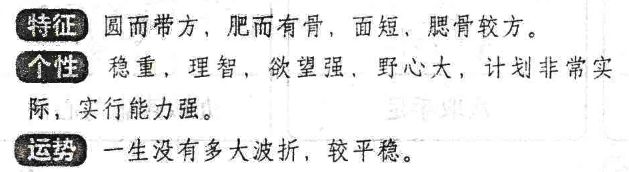 特征 圆而带方，肥而有骨，面短，腮骨较方。
个性 稳重，理智，欲望强，野心大，计划非常实
际，实行能力强。
运势 一生没有多大波折，较平稳。